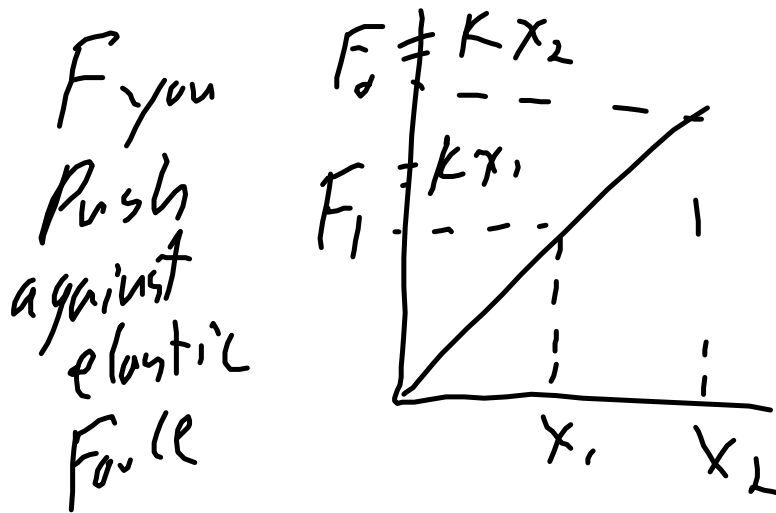 F you
push
against
elastic
Force
F₂ = Kx₂
F₁ = Kx₁
x₁
x₂